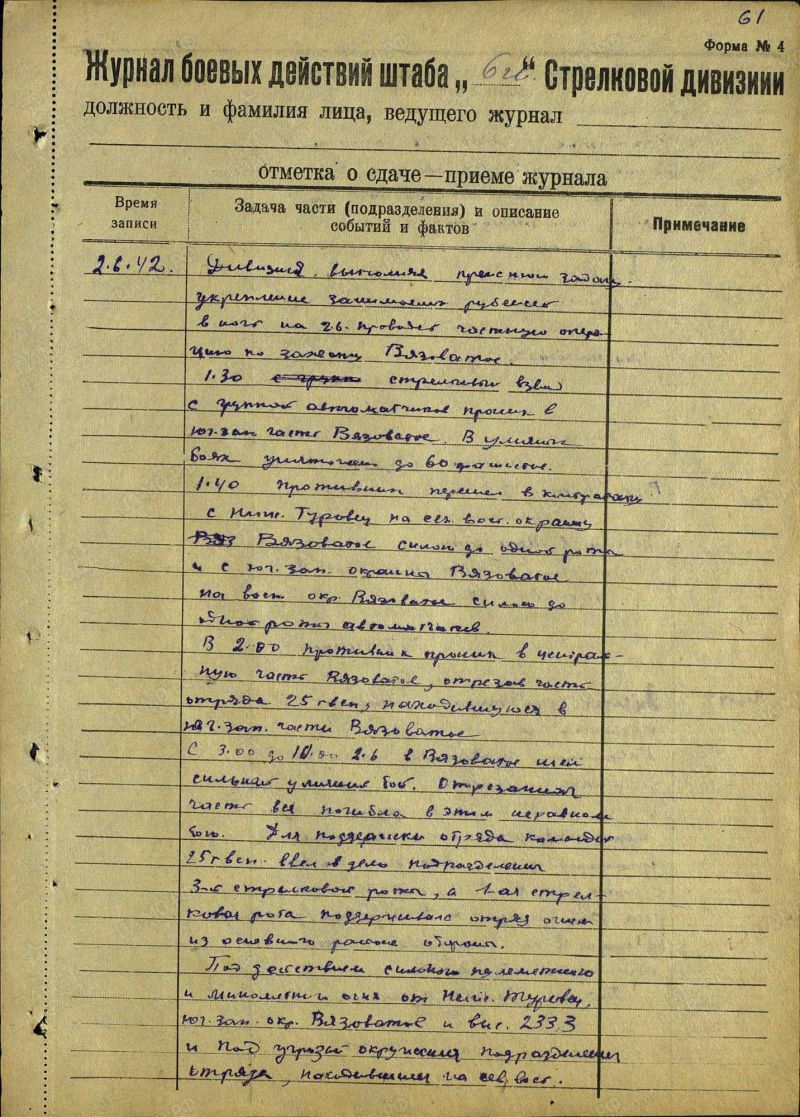 61
Форма № 4
Журнал боевых действий штаба „ 6 гв. “ Стрелковой дивизиии
должность и фамилия лица, ведущего журнал
отметка о сдаче—приеме журнала
Время записи
Задача части (подразделения) и описание событий и фактов
Примечание
2.6.42. Дивизия, выполняя прежнюю задачу
укрепление занимаемых рубежей
в ночь на 2.6. проводят частную опера-
цию по захвату Вязоватое.
1.30 с групп стрелковый взвод
с группой автоматчиков проник в
юг.зап. часть Вязоватое. В уличных
боях уничтожено до 60 фашистов.
1.40 противник перешел в контратаку
с Ниж. Туровец на сев. вост. окраину
Вяз Вязоватое силою до одной роты
и с юг. зап. окраины Вязоватое
на вост. окр. Вязоватое силою до
одной роты автоматчиков.
В 2.00 противник проник в централь-
ную часть Вязоватое, отрезав часть
отряда 25 гвсп, находившуюся в
юг. зап. части Вязоватое
С 3.00 до 10.00 2.6 в Вязоватое шел
сильный уличный бой. Отрезанная
часть вся погибла в этом неравном
бою. Для поддержки отряда командир
25 гвсп. ввел в дело подразделения
3-й стрелковой роты, а 1-ая стрел-
ковая рота поддерживала отряд огнем
из основного района обороны.
Под действием сильного пулеметного
и минометного огня от Ниж. Туровец,
юг. зап. окр. Вязоватое и выс. 233.3
и под угрозой окружения подразделения
отряда, находившиеся на сев. вост.